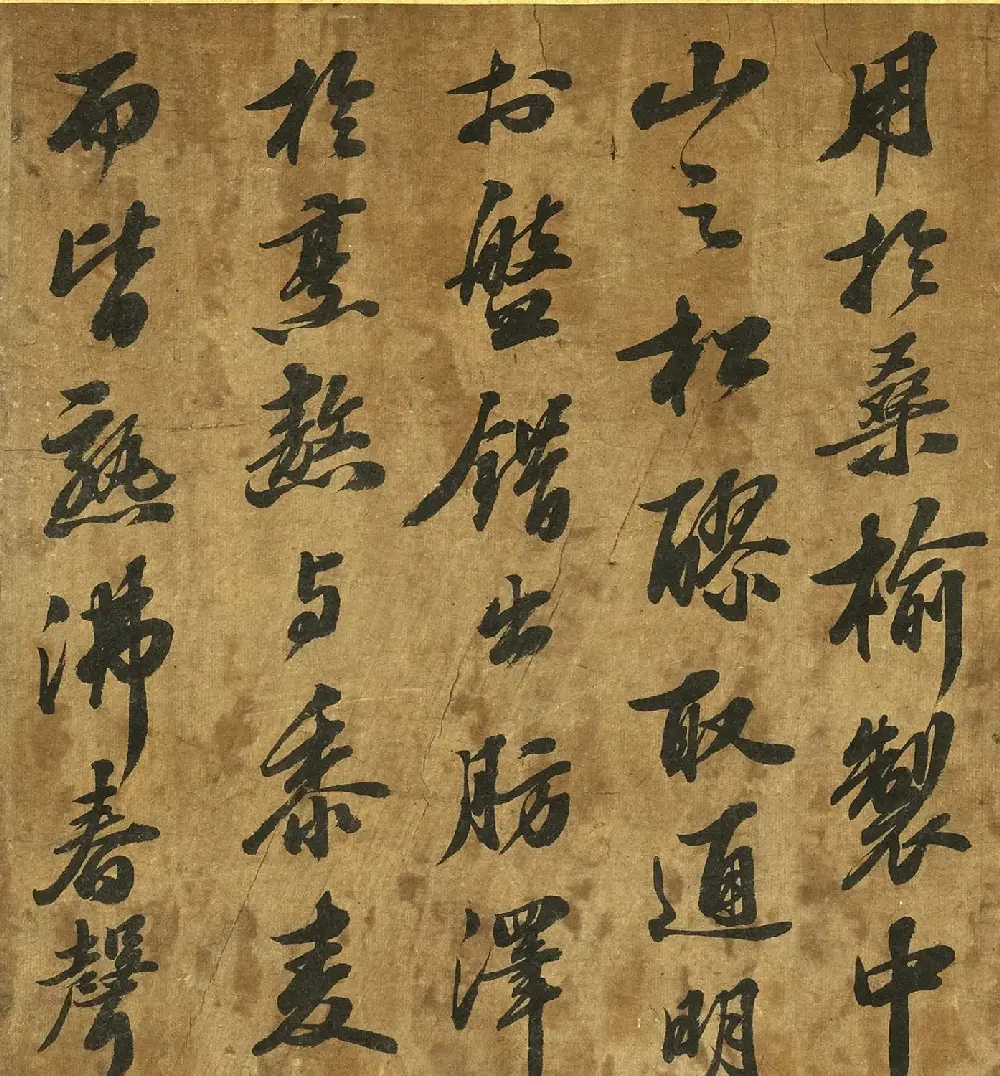 用於桑榆製中
山之松醪取通明
於盤錯出肪澤
於烹熬与黍麦
而皆熟沸春聲